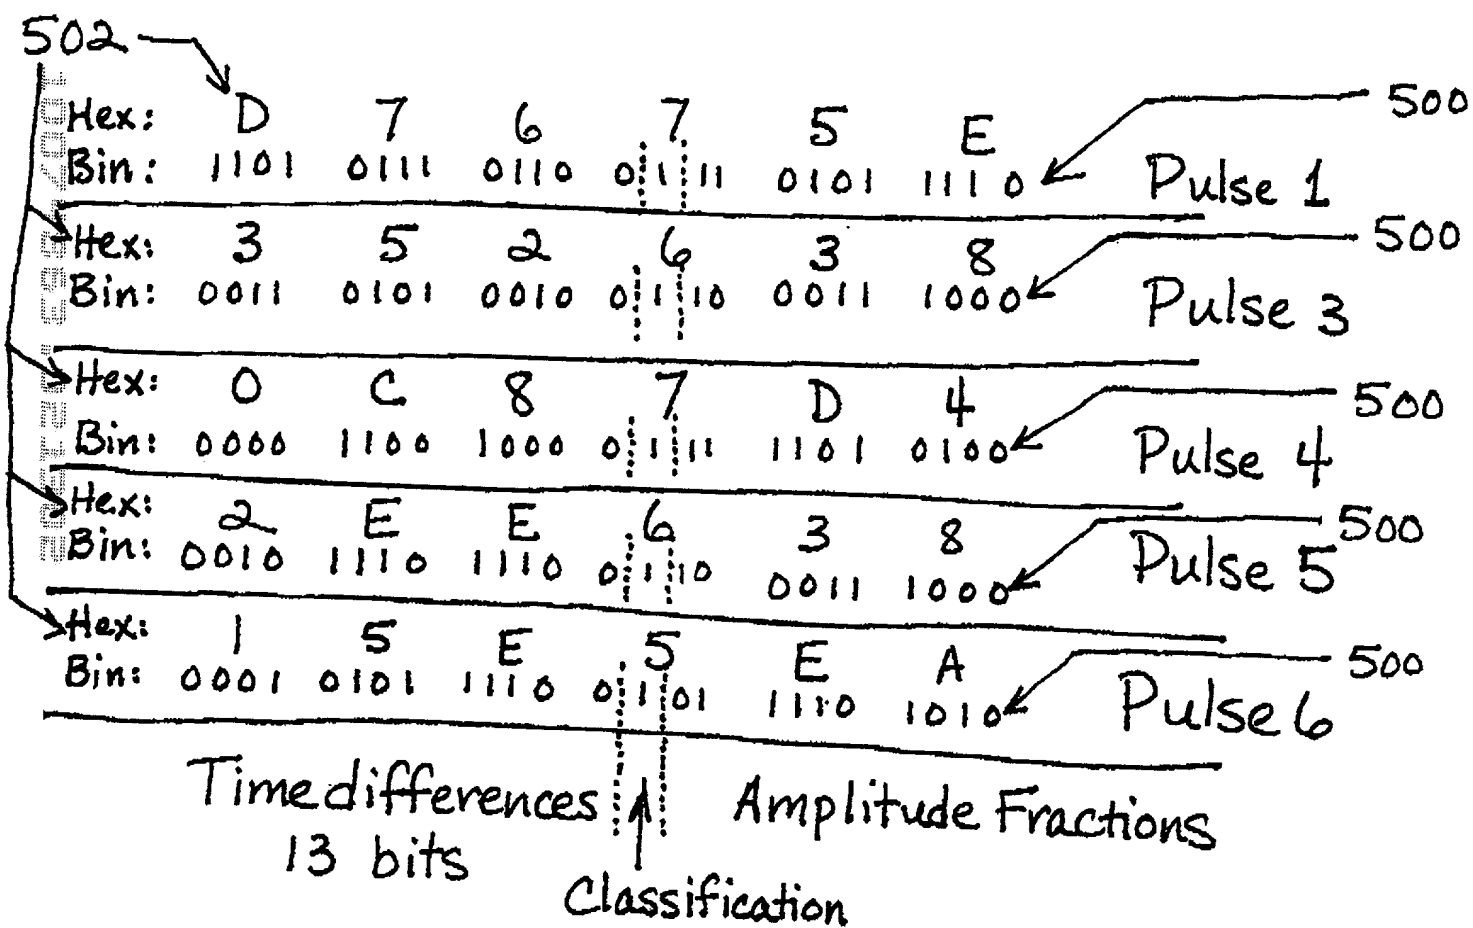 502
Hex: D 7 6 7 5 E 500
Bin: 1101 0111 0110 0111 0101 1110 Pulse 1
Hex: 3 5 2 6 3 8 500
Bin: 0011 0101 0010 0110 0011 1000 Pulse 3
Hex: 0 C 8 7 D 4 500
Bin: 0000 1100 1000 0111 1101 0100 Pulse 4
Hex: 2 E E 6 3 8 500
Bin: 0010 1110 1110 0110 0011 1000 Pulse 5
Hex: 1 5 E 5 E A 500
Bin: 0001 0101 1110 0101 1110 1010 Pulse 6
Time differences Amplitude Fractions
13 bits
Classification